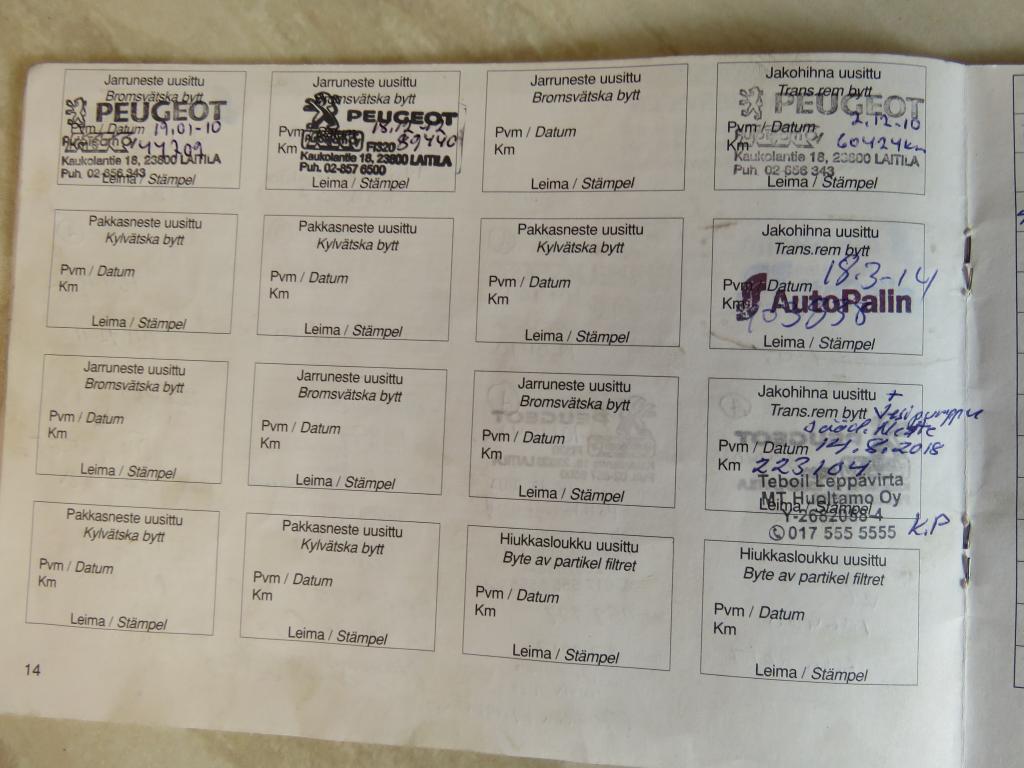 Jarruneste uusittu
Bromsvätska bytt
PEUGEOT
Pvm / Datum 19.01-10
Km 44209
Kaukolantie 18, 23800 LAITILA
Puh. 02-856 343
Leima / Stämpel
Jarruneste uusittu
Bromsvätska bytt
PEUGEOT
Pvm 18.12.12
Km FI320 89440
Kaukolantie 18, 23800 LAITILA
Puh. 02-857 6500
Leima / Stämpel
Jarruneste uusittu
Bromsvätska bytt
Pvm / Datum
Km
Leima / Stämpel
Jakohihna uusittu
Trans.rem bytt
PEUGEOT
Pvm / Datum 2.12-10
Km 60424km
Kaukolantie 18, 23800 LAITILA
Puh. 02-856 343
Leima / Stämpel
Pakkasneste uusittu
Kylvätska bytt
Pvm / Datum
Km
Leima / Stämpel
Pakkasneste uusittu
Kylvätska bytt
Pvm / Datum
Km
Leima / Stämpel
Pakkasneste uusittu
Kylvätska bytt
Pvm / Datum
Km
Leima / Stämpel
Jakohihna uusittu
Trans.rem bytt
Pvm / Datum 18.3-14
Km AutoPalin
Leima / Stämpel
Jarruneste uusittu
Bromsvätska bytt
Pvm / Datum
Km
Leima / Stämpel
Jarruneste uusittu
Bromsvätska bytt
Pvm / Datum
Km
Leima / Stämpel
Jarruneste uusittu
Bromsvätska bytt
Pvm / Datum
Km
Leima / Stämpel
Jakohihna uusittu +
Trans.rem bytt Vesipumppu
Neste
Pvm / Datum 14.8.2018
Km 223104
Teboil Leppävirta
MT Huoltamo Oy
Leima / Stämpel
Y-2682088-4
017 555 5555 K.P
Pakkasneste uusittu
Kylvätska bytt
Pvm / Datum
Km
Leima / Stämpel
Pakkasneste uusittu
Kylvätska bytt
Pvm / Datum
Km
Leima / Stämpel
Hiukkasloukku uusittu
Byte av partikel filtret
Pvm / Datum
Km
Leima / Stämpel
Hiukkasloukku uusittu
Byte av partikel filtret
Pvm / Datum
Km
Leima / Stämpel
14